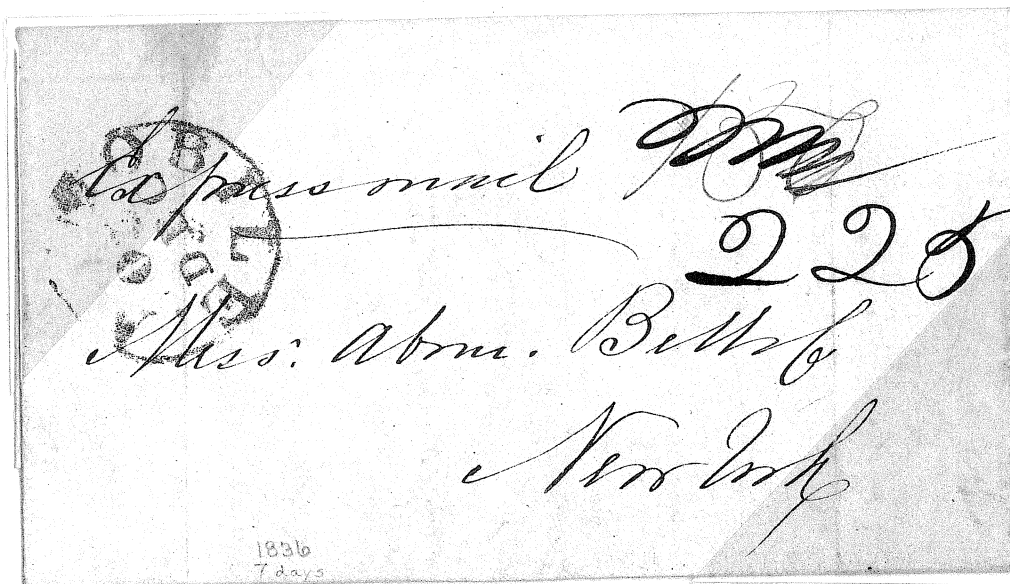 MOBILE
Express mail
225
Mess: Abm. Bell &
New York
1836
7 days